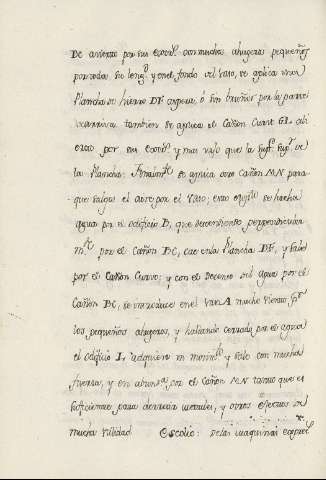 de asiento por sus extrem.s con muchos ahugeros pequeños
por todas su long.d y en el fondo del vaso, se aplica una
Plancha de hierro DF aspera, ó sin bruñir por la parte
tambien se aplica el Cañon Curvo GL abi
erto por sus extrem.s y mas vajo que la supf.e sup.r de
la Plancha. Finalm.te se aplica otro Cañon MN para
que salga el aire por el Vaso; esto equip.do se hecha
agua por el orificio B, que decendiendo perpendicular
m.te por el Cañon BC, cae en la Plancha DF, y sale
por el Cañon Curvo; y con el Decenso del agua por el
Cañon BC, se introduce en el Vaso A mucho viento, p.r
los pequeños ahugeros, y hallando cerrado por el agua
el orificio L, adquiere un movim.to y sale con mucha
fuerza, y en abunza por el Cañon MN tanto que es
suficiente para derretir metales, y otros efectos de
mucha utilidad Escolio: De las maquinas